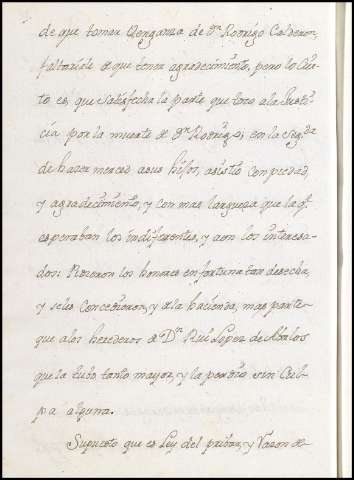 de que tomar Venganza de Dn. Rodrigo Calderon,
faltoríale de que tener agradecimiento, pero lo Cier-
to es, que satisfecha la parte que toco ala Justi-
cia por la muerte de Dn. Rodrigo; en la Segda.
de hazer merced asus hijos, asistio con piedad,
y agradecimiento, y con mas larguesa que la q.
esperaban los indiferentes, y aon los interesa-
dos: Rozeron los honores en fortuna tan desecha,
y seles Concedieron, y dela hacienda, mas parte
que alos herederos de Dn. Rui Lopez de Abalos
que la tubo tanto mayor, y la perdio sin Cul-
pa alguna.
Supuesto que es Ley del pribar, y Vazon de